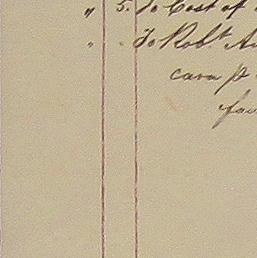 " 5. To Cost of
" . To Robt. An
cara p